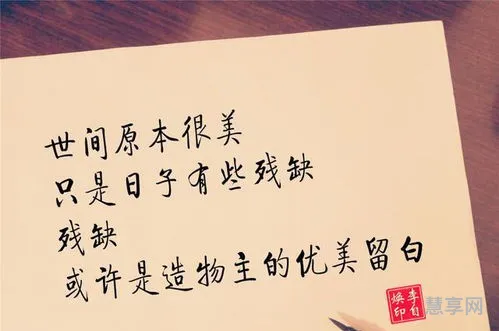 世间原本很美
只是日子有些残缺
残缺
或许是造物主的优美留白
李白
焕印
慧享网